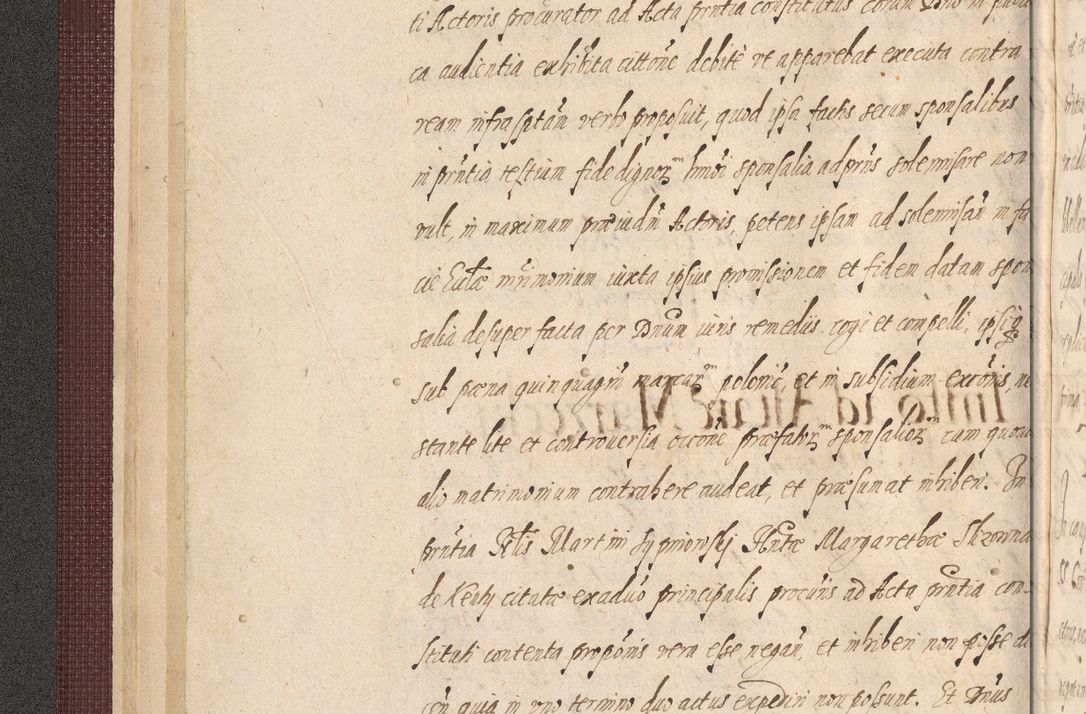 ti Actoris procurator ad Acta prntia constitutus coram Dno in publi
ca audientia exhibita cittone debite ut apparebat executa contra
ream infrasptam verbo proposuit, quod ipsa factis secum sponsalibus
in prntia testium fide dignorm hmoi sponsalia adprns solemisare non
vult, in maximum præiudm Actoris, petens ipsam ad solemisam in fa
cie Eccltæ mrimonium iuxta ipsius promissionem et fidem datam spon
salia desuper facta per Dnum iuris remediis cogi et compelli, ipsiq
sub pæna quinquagm marcarm polonic, et in subsidium excois, ne
stante lite et controversia occone præfatorm sponsaliorm cum quocu
alio matrimonium contrahere audeat, et præsumat inhiberi. In
prntia Nlis Martini Sypriowskj Hntæ Margarethæ Skrowna
de Kenty citatæ exaduo principalis procuris ad Acta prntia con-
stituti contenta proponis vera esse negan, et inhiberi non posse di
cen quia in uno termino duo actus expediri non possunt. Et Dnus